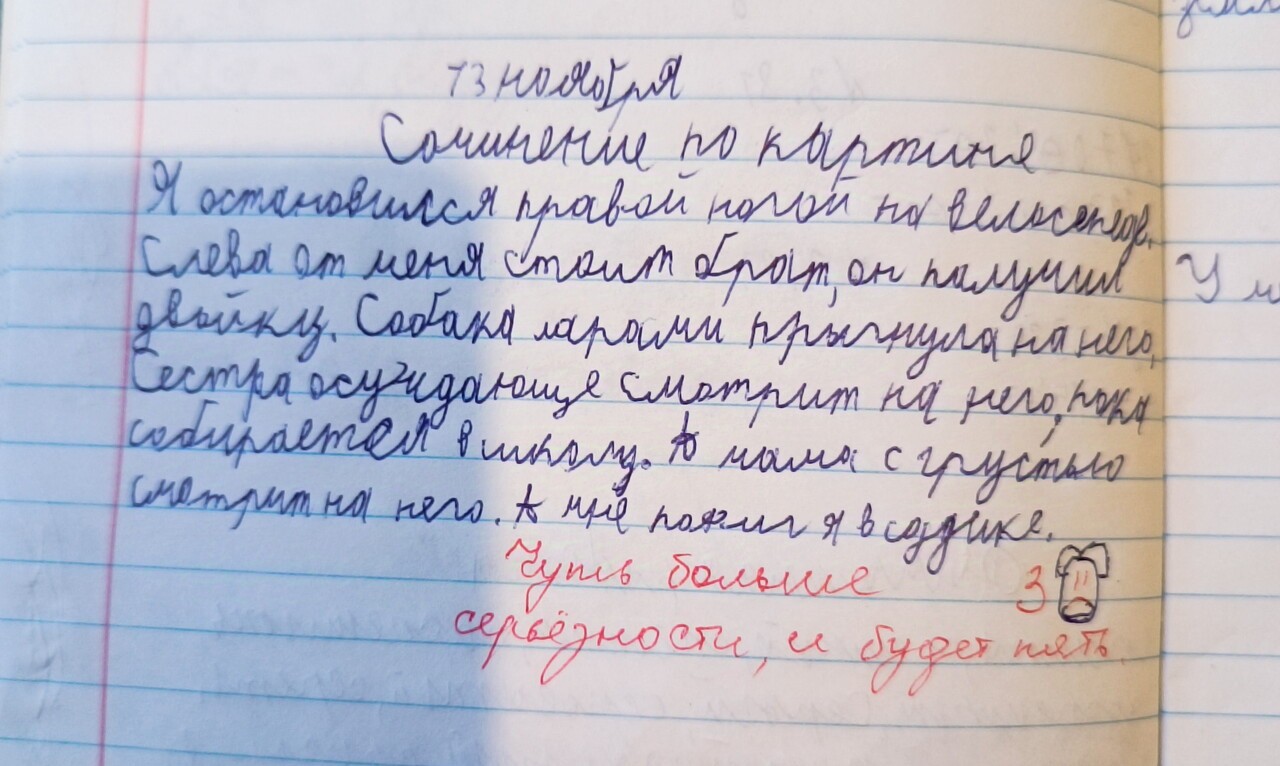 13 ноября
Сочинение по картине
Я остановился правой ногой на велосепеде.
Слева от меня стоит брат, он палучил
двойку. Собака лапами прыгнула на него,
Сестра осуждающе смотрит на него, пока
собирается в школу. А мама с грустью
смотрит на него. А мне пофиг я в садике.
Чуть больше 3
серьёзности, и будет пять.
У м